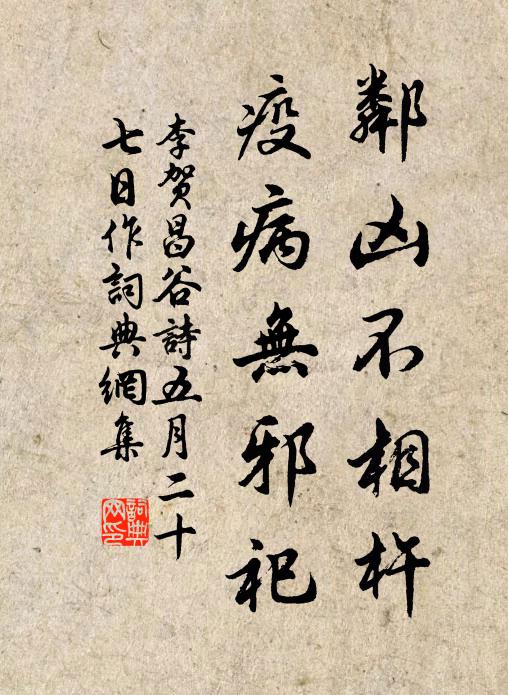 鄰凶不相杵
疫病無邪祀
李賀昌谷詩五月二十
七日作詞典網集
詞典
网印